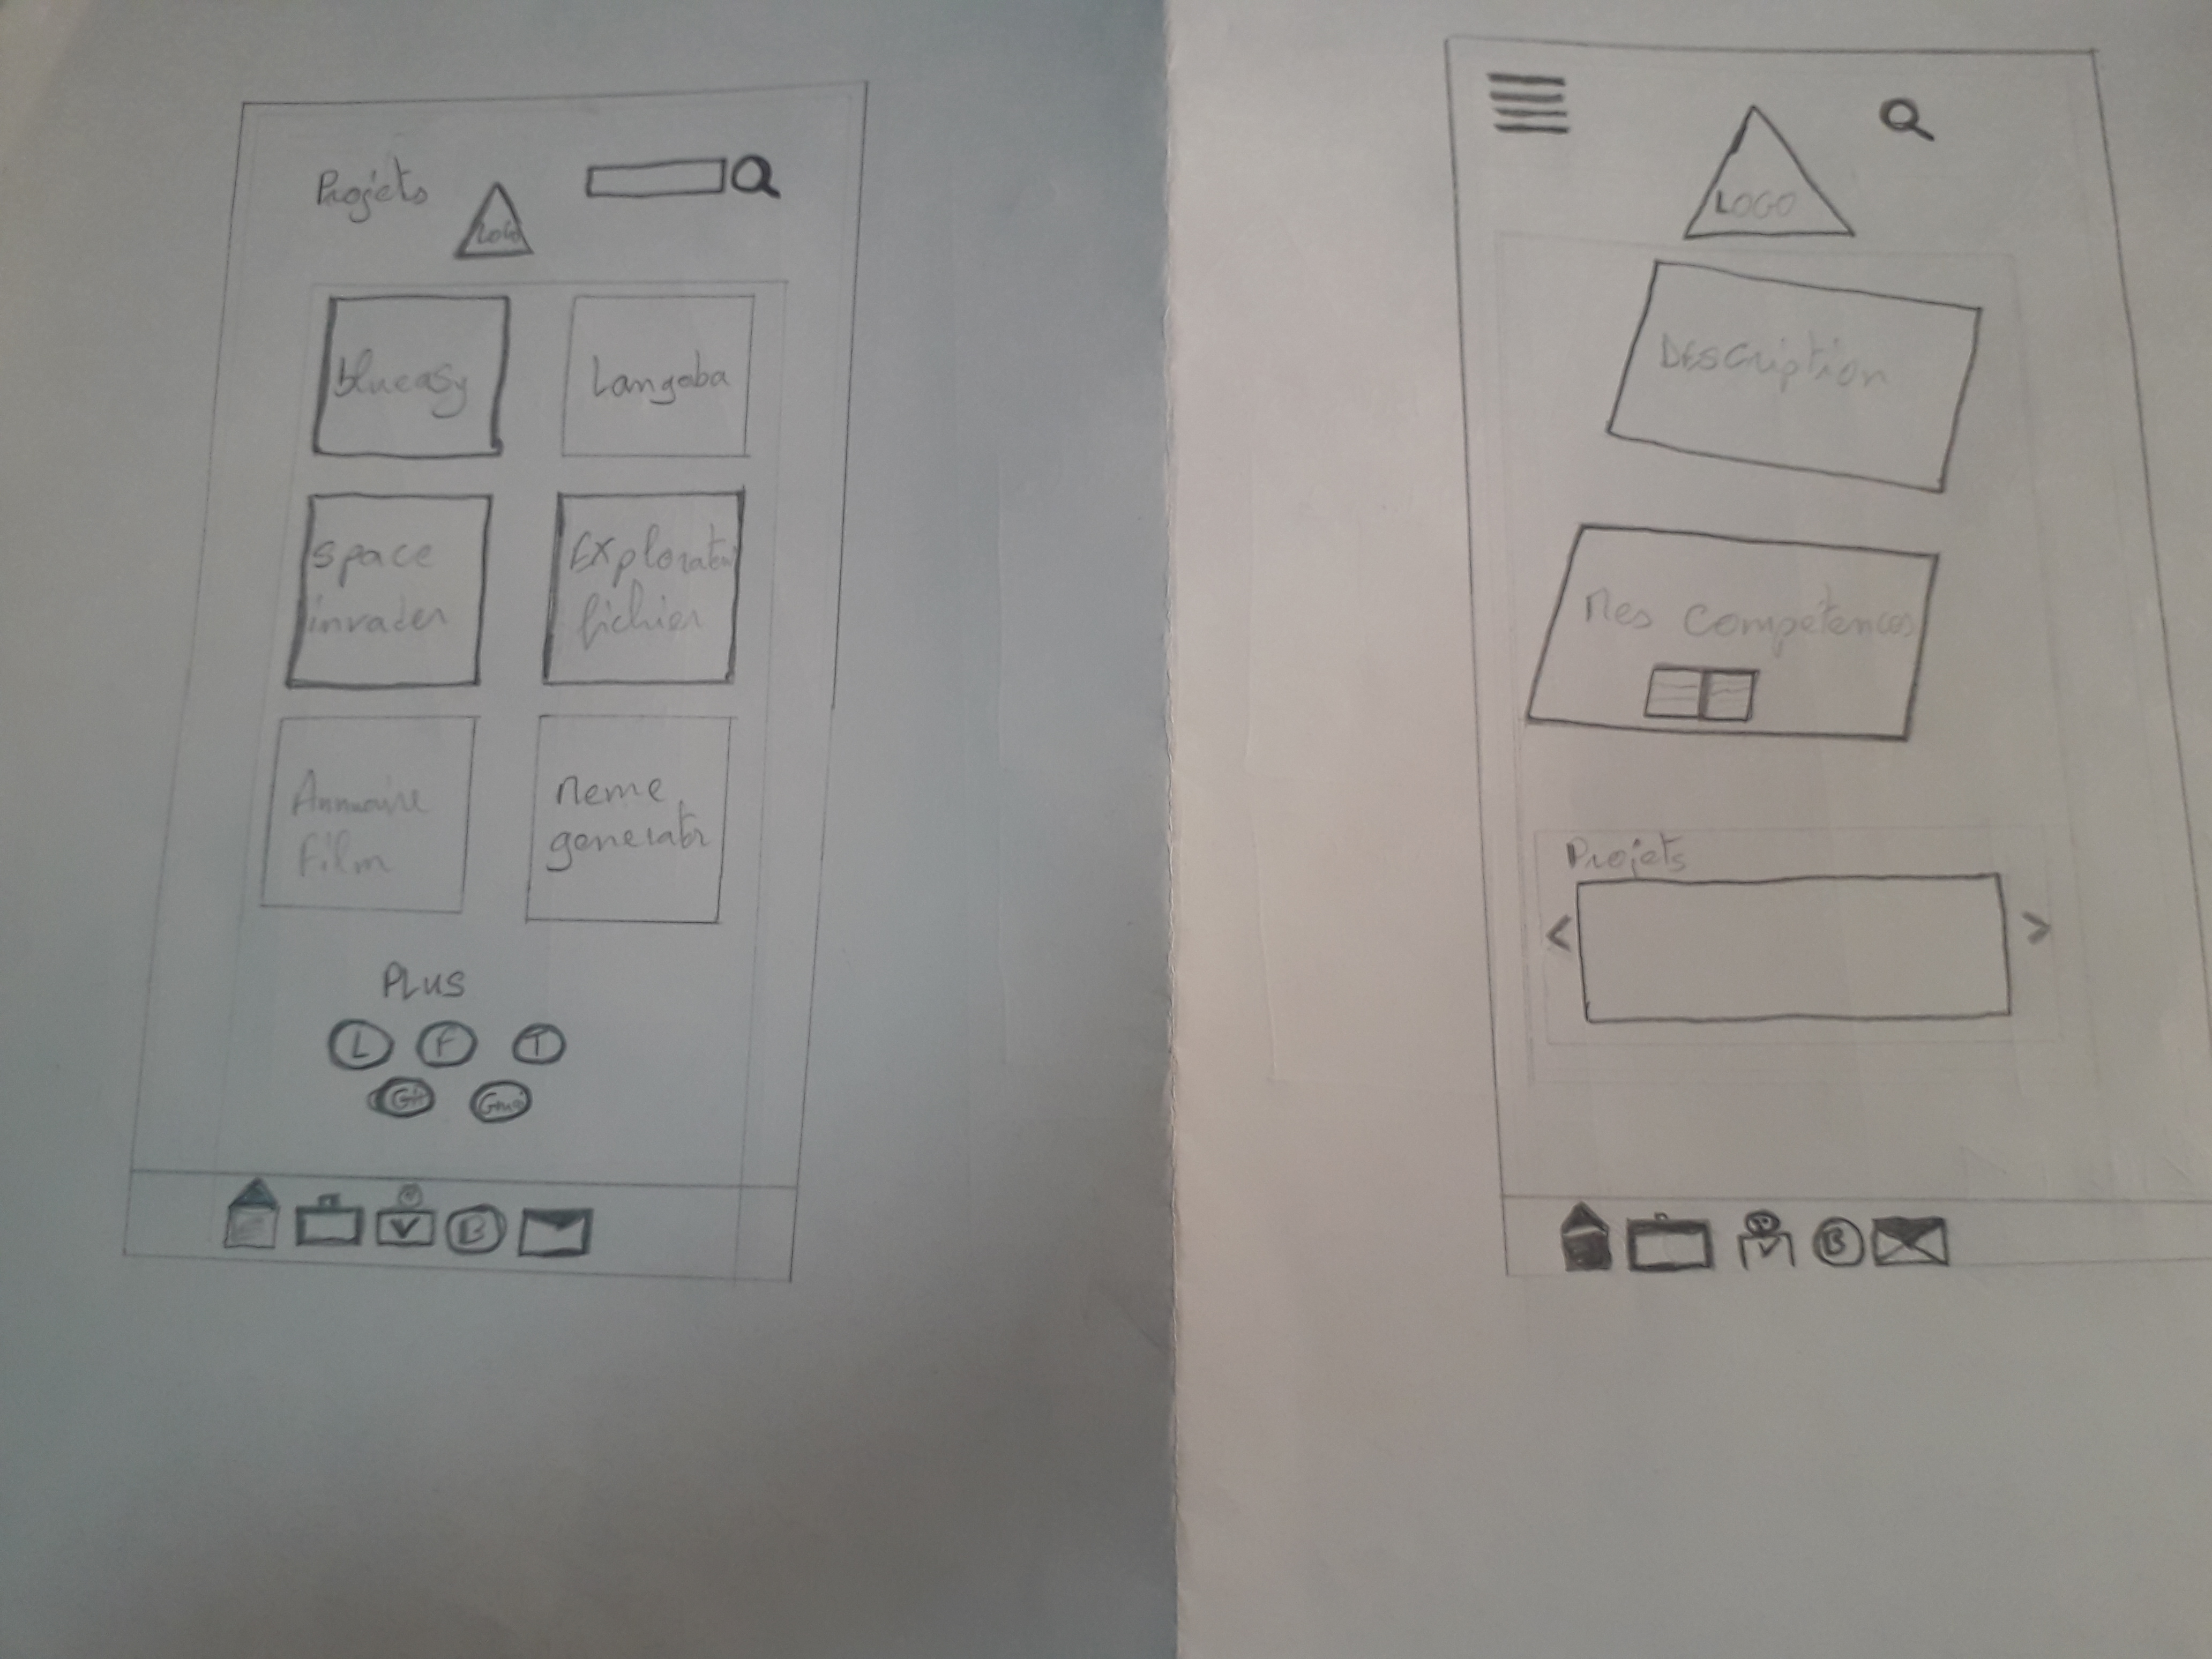 Projets
Logo
blueasy
Langaba
space
invader
Explorateu
fichier
Annuaire
Film
meme
generator
PLUS
L
F
T
Git
Gmai
B
LOGO
DEScription
mes compétences
Projets
B